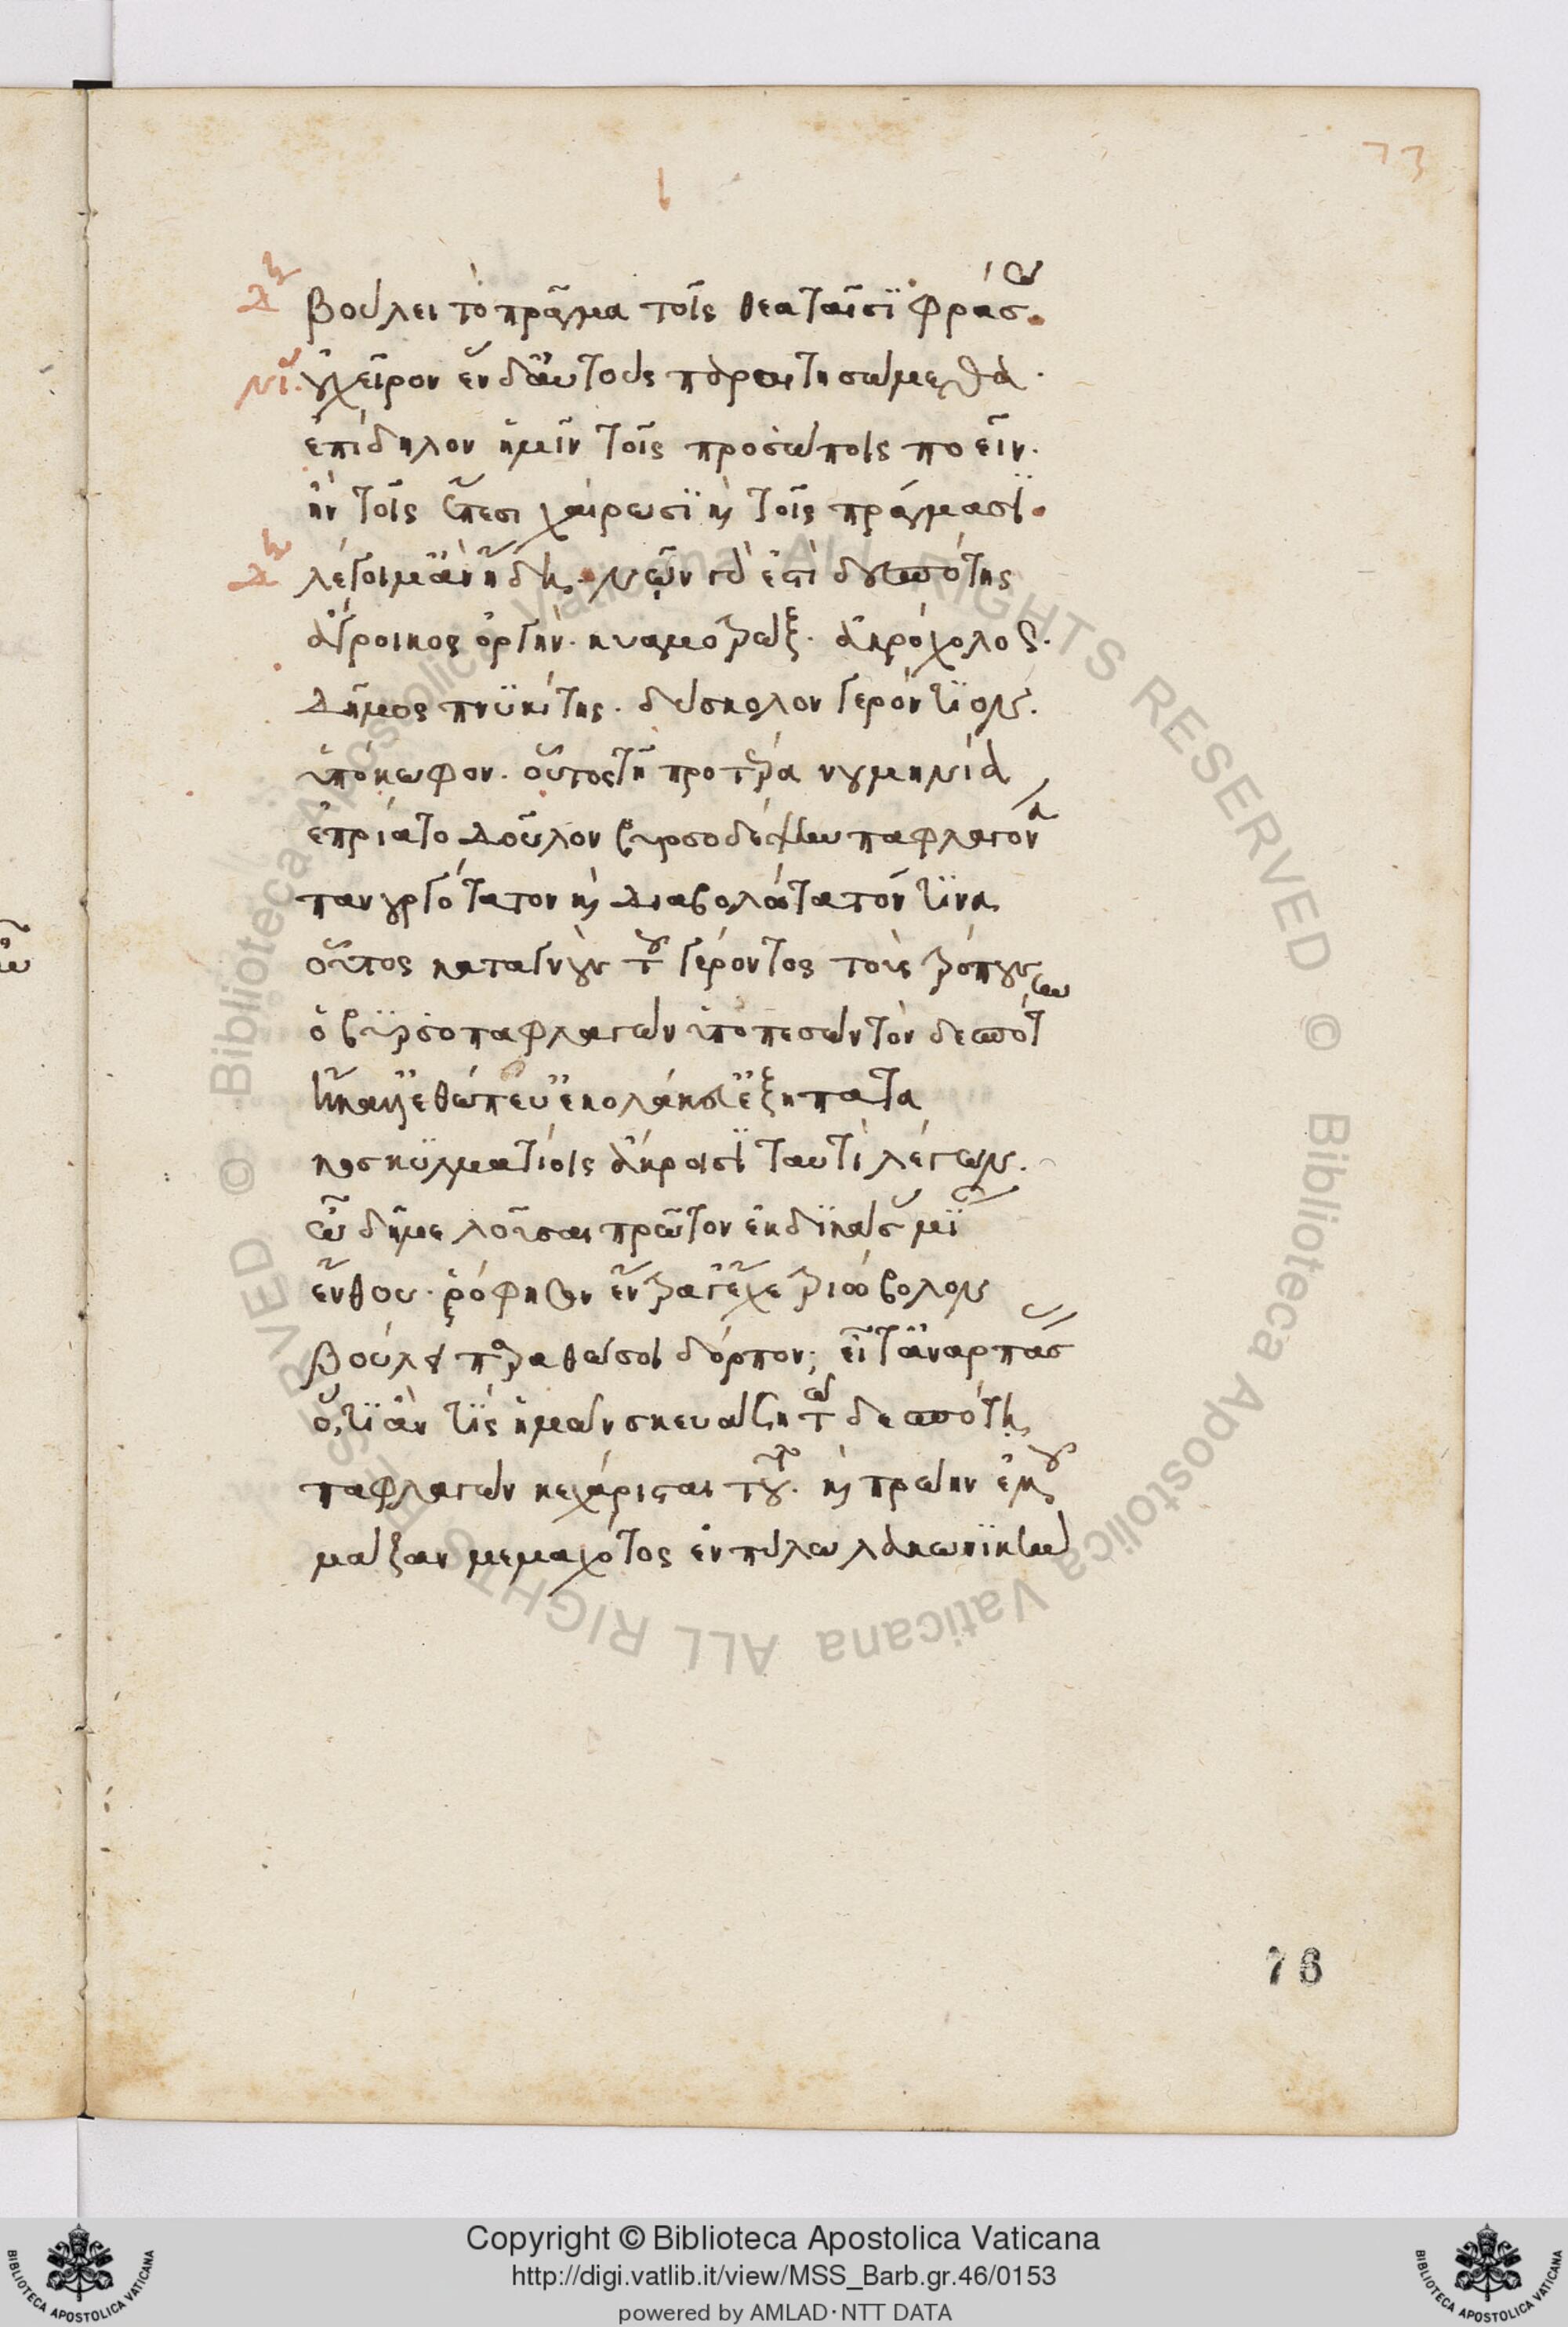 73
Δη βούλει τὸ πρᾶγμα τοῖς θεαταῖσϊ φράσω
Νι. οὐ χεῖρον ἓν δ' αὐτοὺς παραιτησώμεθα.
ἐπίδηλον ἡμῖν τοῖς προσώποις ποεῖν.
ἢν τοῖς ἔπεσι χαίρωσϊ καὶ τοῖς πράγμασϊ.
Δη λέγοιμ' ἂν ἤδη. νῶν γάρ ἐστι δεσπότης
ἄγροικος ὀργὴν. κυαμοτρὼξ. ἀκρόχολος.
Δῆμος πνυκίτης. δύσκολον γερόντιον.
ὑπόκωφον. οὗτος τῇ προτέρα νουμηνία
ἐπρίατο δοῦλον βυρσοδέψην παφλαγόνα
πανουργότατον καὶ διαβολώτατόν τινα
οὗτος καταγνοὺς τοῦ γέροντος τοὺς τρόπους
ὁ βυρσοπαφλαγὼν ὑποπεσὼν τὸν δεσπότην
ἤκαλλ' ἐθώπευ' ἐκολάκευ' ἐξηπάτα
κοσκυλματίοις ἄκροισϊ ταυτὶ λέγων.
ὦ δῆμε λοῦσαι πρῶτον ἐκδικάσας μίαν
ἔνθου. ῥόφησον ἔντραγ' ἔχε τριώβολον
βούλει παραθῶ σοι δόρπον; εἶτ' ἀναρπάσας
ὅ,τι ἄν τις ἡμῶν σκευάσῃ τῷ δεσπότῃ
παφλαγὼν κεχάρισται τοῦτο. καὶ πρώην ἐμοῦ
μάζαν μεμαχότος ἐν πύλω λακωνικὴν
78
© Biblioteca Apostolica Vaticana ALL RIGHTS RESERVED © Biblioteca Apostolica Vaticana ALL RIGHTS RESERVED
Copyright © Biblioteca Apostolica Vaticana
http://digi.vatlib.it/view/MSS_Barb.gr.46/0153
powered by AMLAD·NTT DATA
BIBLIOTECA APOSTOLICA VATICANA
BIBLIOTECA APOSTOLICA VATICANA